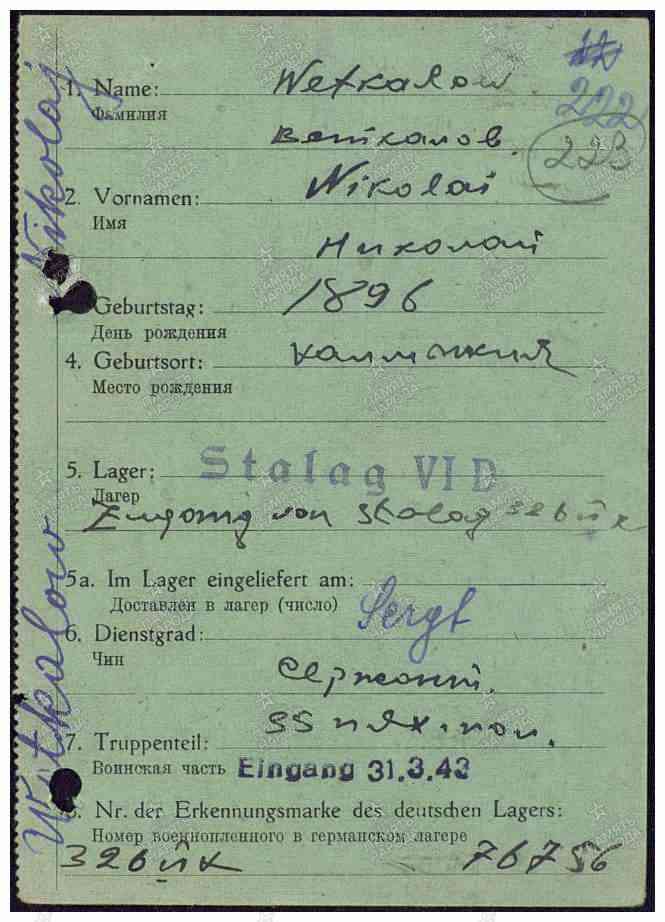 222
223
1. Name: Wetkalow
Фамилия
Веткалов
2. Vornamen: Nikolai
Имя
Николай
Geburtstag: 1896
День рождения
4. Geburtsort:
Место рождения
5. Lager: Stalag VI D
Лагер
Zugang von Stalag 326 ЙК
5a. Im Lager eingeliefert am:
Доставлен в лагер (число)
Sergt
6. Dienstgrad:
Чин
Сержант.
55 пех. пол.
7. Truppenteil:
Воинская часть Eingang 31.3.43
Nr. der Erkennungsmarke des deutschen Lagers:
Номер военнопленного в германском лагере
326 ЙК 76756
Wetkalow Nikolaj
ПАМЯТЬ НАРОДА